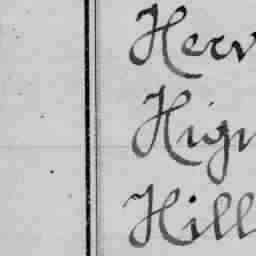 Herv
Hign
Hill